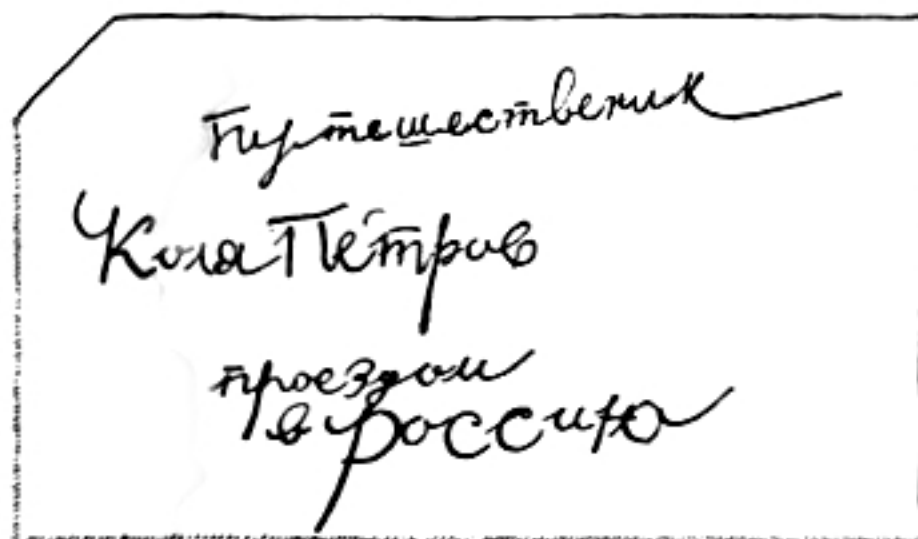 Путешественик
Коля Петров
проездом
в Россию